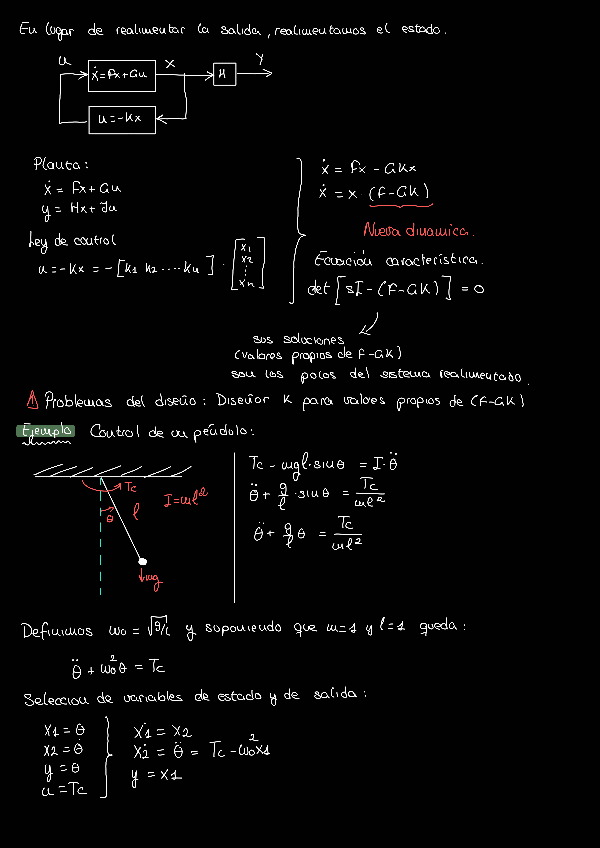 En lugar de realimentar la salida, realimentamos el estado.
u x y
ẋ=Fx+Gu H
u=-Kx
Planta:
ẋ = Fx+Gu
y = Hx+Ju
Ley de control
u=-Kx = -[K1 K2 ....Kn] · [x1 x2 ⋮ xn]
ẋ = Fx - GKx
ẋ = x (F-GK)
Nueva dinamica.
Ecuación característica.
det [sI - (F-GK)] = 0
sus soluciones
(valores propios de F-GK)
son los polos del sistema realimentado.
⚠ Problemas del diseño: Diseñar K para valores propios de (F-GK)
Ejemplo Control de un péndolo:
Tc
I=ml²
θ l
mg
Tc - mgl·sinθ = I·θ̈
θ̈ + g/l ·sinθ = Tc/ml²
θ̈ + g/l θ = Tc/ml²
Definimos wo = √g/l y suponiendo que m=1 y l=1 queda:
θ̈ + wo²θ = Tc
Seleccion de variables de estado y de salida:
x1 = θ
x2 = θ̇
y = θ
u = Tc
ẋ1 = x2
ẋ2 = θ̈ = Tc - wo²x1
y = x1